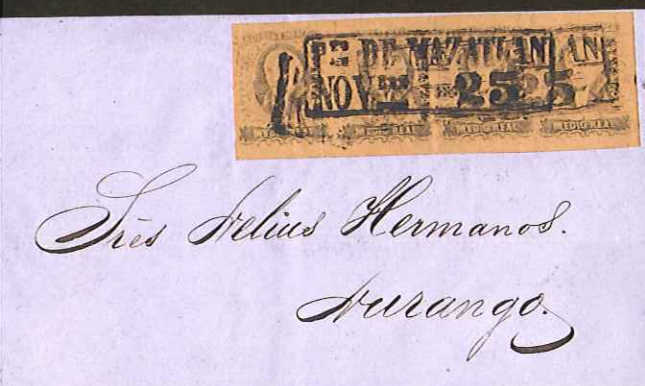 DE MAZATLAN AN
NOV.BRE 25 25
MEDIO REAL MEDIO REAL MEDIO REAL MEDIO REAL
Sres Felius Hermanos.
Durango.